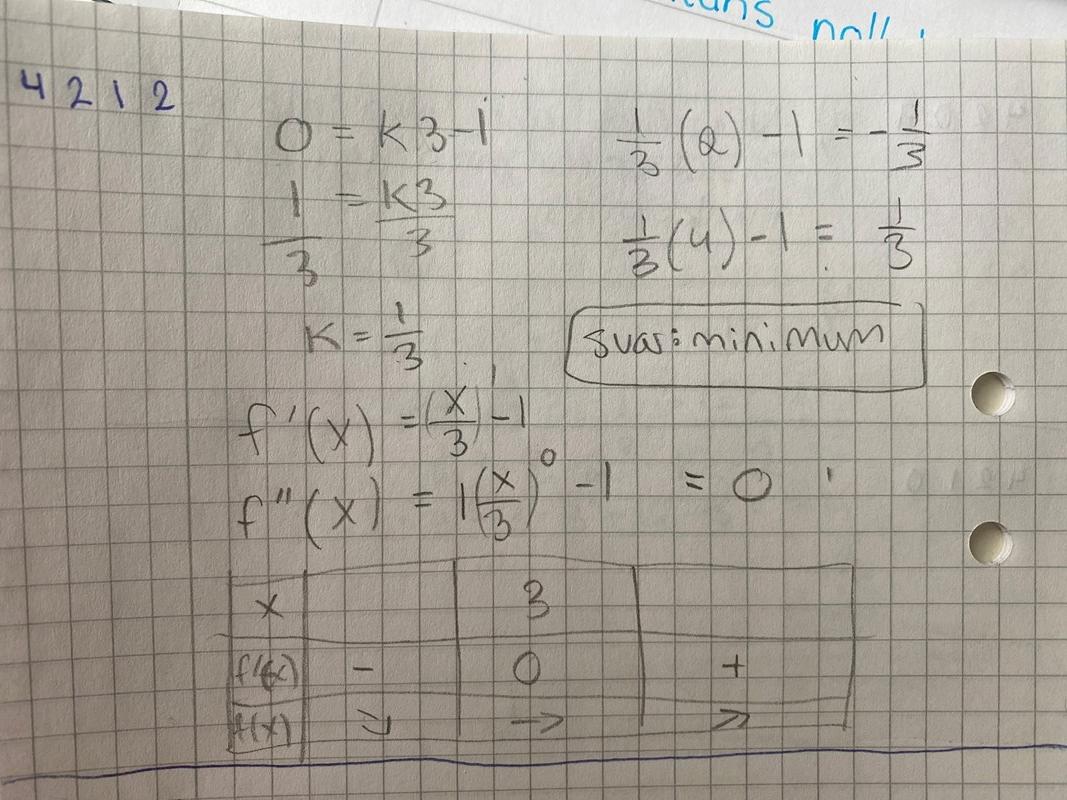 noll
4212
0 = K3-1
1/3 = K3/3
K = 1/3
1/3 (2) - 1 = - 1/3
1/3 (4) - 1 = 1/3
Svar: minimum
f'(x) = (x/3)¹ - 1
f''(x) = 1(x/3)⁰ - 1 = 0
x 3
f'(x) - 0 +
f(x) ↘ → ↗